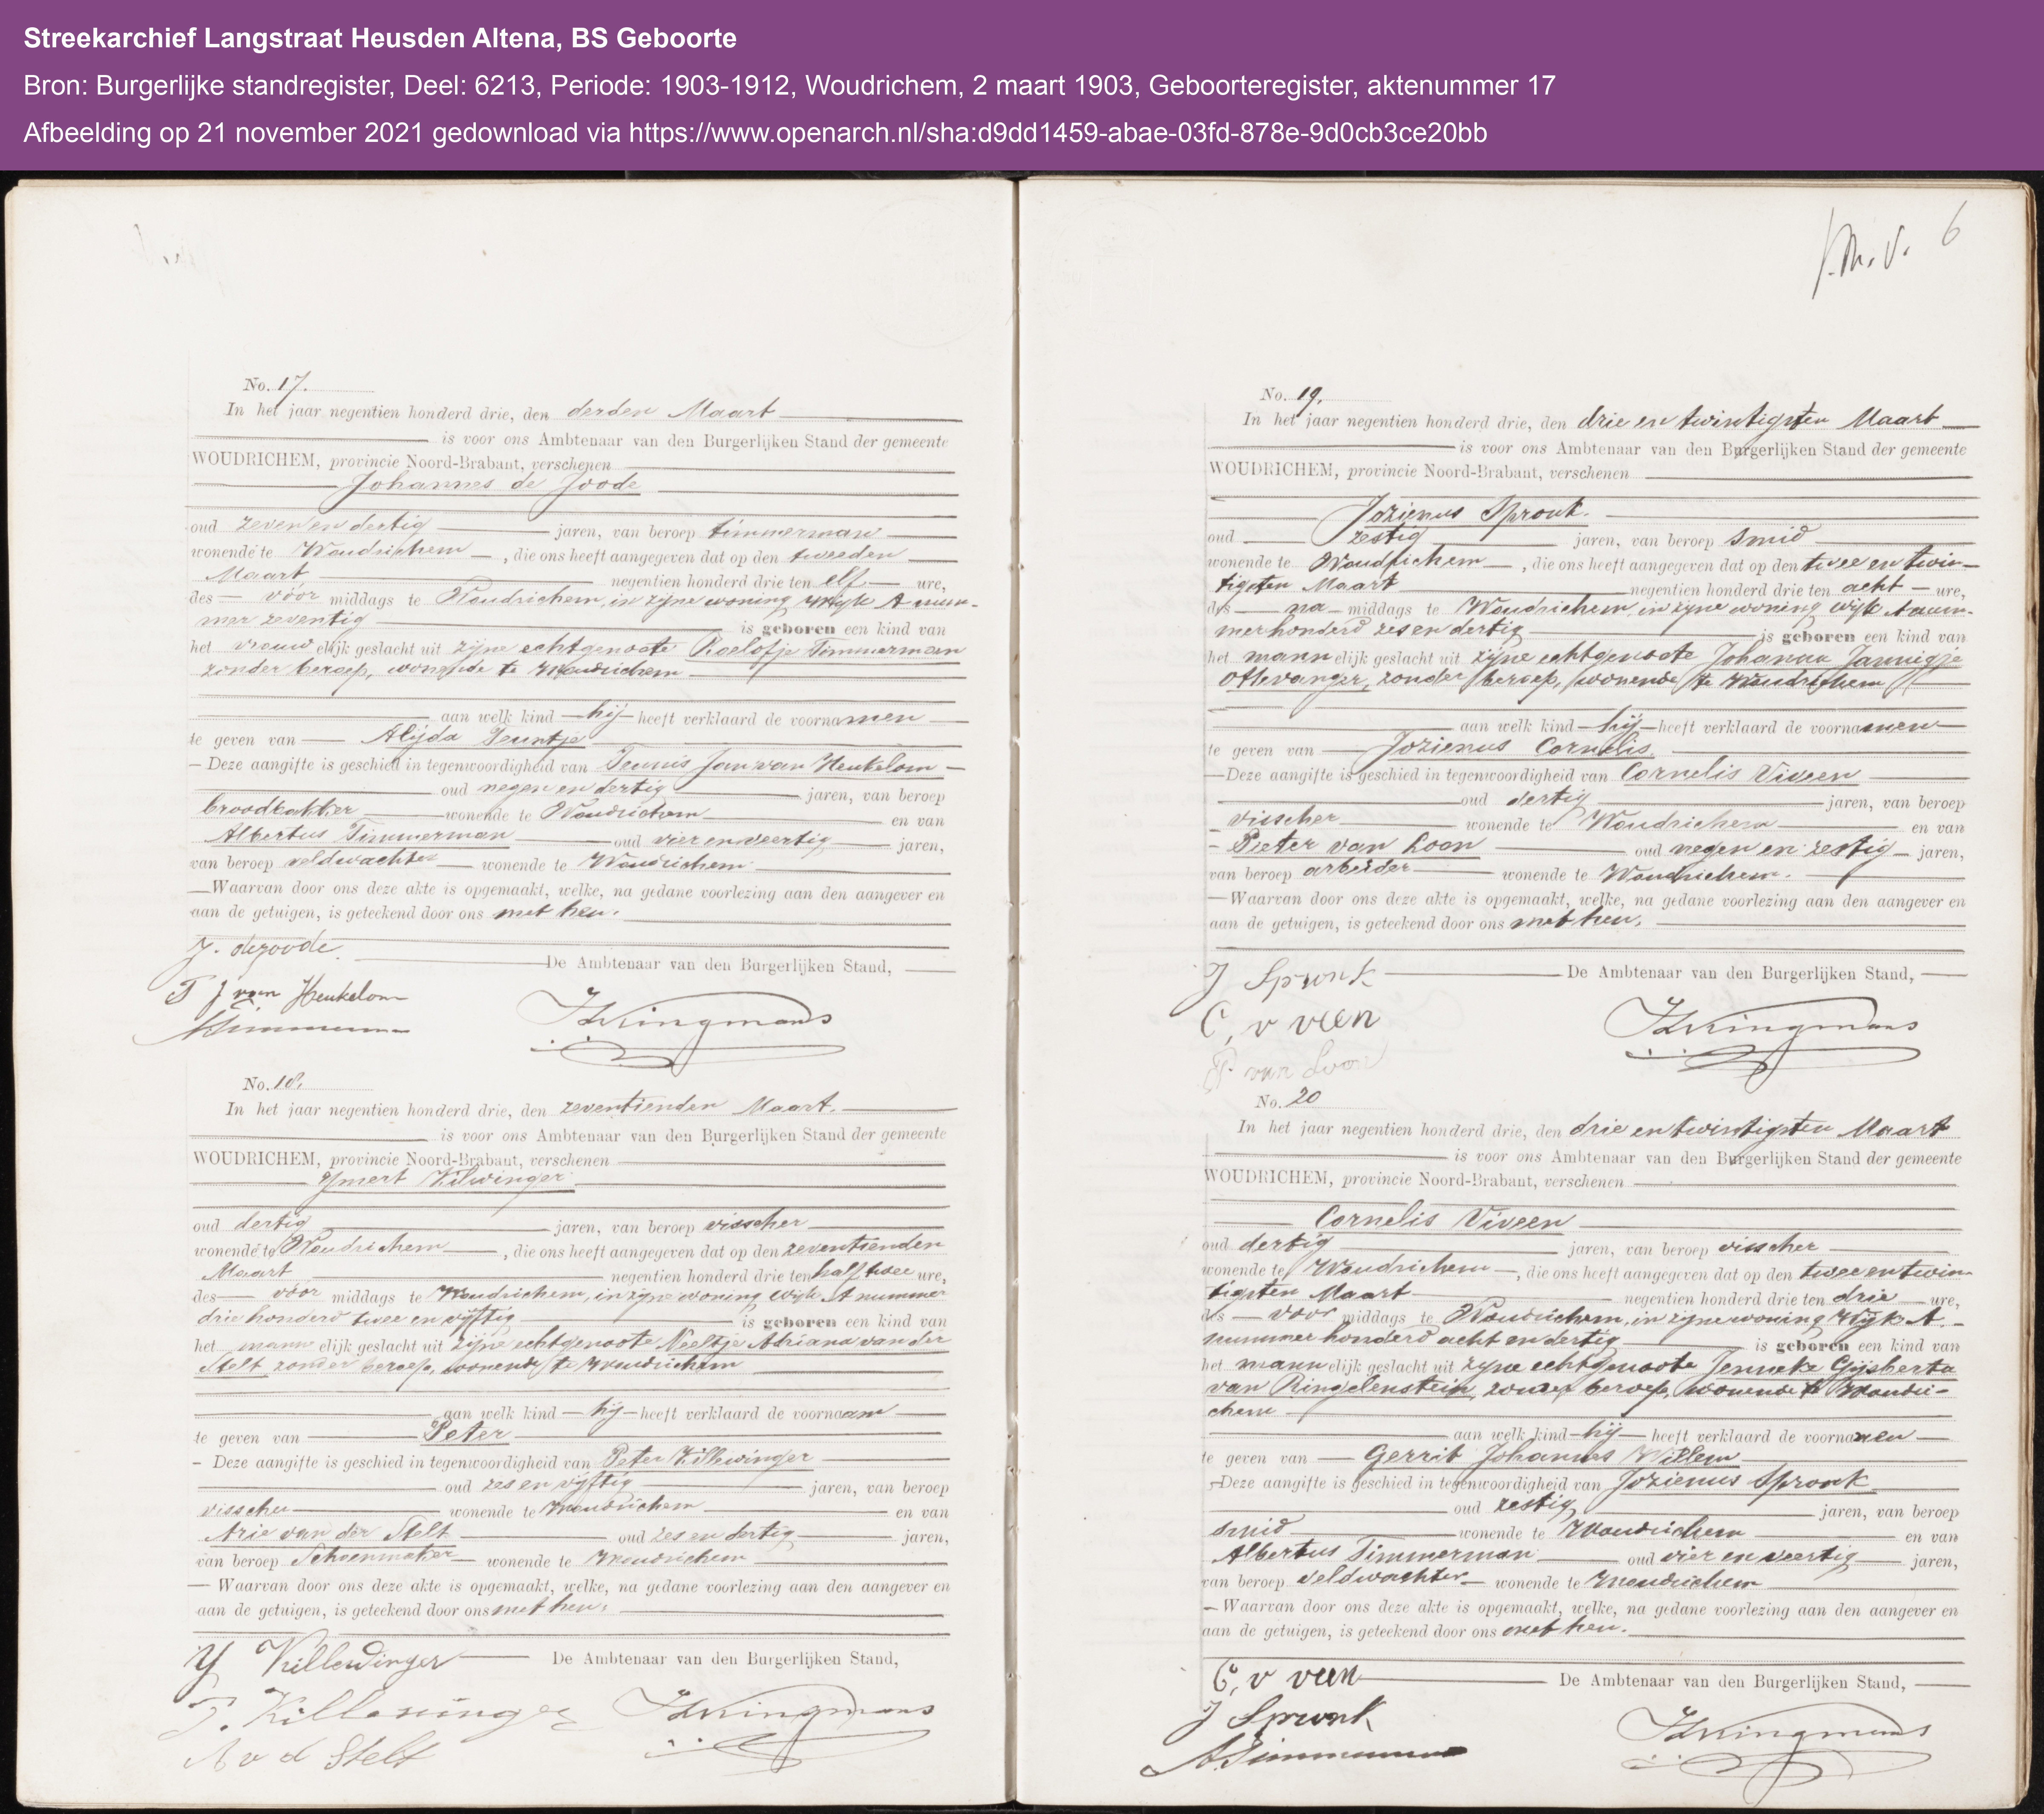 Streekarchief Langstraat Heusden Altena, BS Geboorte
Bron: Burgerlijke standregister, Deel: 6213, Periode: 1903-1912, Woudrichem, 2 maart 1903, Geboorteregister, aktenummer 17
Afbeelding op 21 november 2021 gedownload via https://www.openarch.nl/sha:d9dd1459-abae-03fd-878e-9d0cb3ce20bb
No. 17.
In het jaar negentien honderd drie, den derden Maart
is voor ons Ambtenaar van den Burgerlijken Stand der gemeente
WOUDRICHEM, provincie Noord-Brabant, verschenen
Johannes de Joode
oud zeven en dertig jaren, van beroep timmerman
wonende te Woudrichem, die ons heeft aangegeven dat op den tweeden
Maart negentien honderd drie ten elf ure,
des voor middags te Woudrichem, in zijne woning wijk A num-
mer zeventig is geboren een kind van
het vrouwelijk geslacht uit zijne echtgenoote Roelofje Timmerman
zonder beroep, wonende te Woudrichem
aan welk kind hij heeft verklaard de voornamen
te geven van Alijda Teuntje
Deze aangifte is geschied in tegenwoordigheid van Teunis Jan van Heukelom
oud negen en dertig jaren, van beroep
broodbakker wonende te Woudrichem en van
Albertus Timmerman oud vier en veertig jaren,
van beroep veldwachter wonende te Woudrichem.
Waarvan door ons deze akte is opgemaakt, welke, na gedane voorlezing aan den aangever en
aan de getuigen, is geteekend door ons met hen.
J. de joode
De Ambtenaar van den Burgerlijken Stand,
T J van Heukelom
No. 18.
In het jaar negentien honderd drie, den zeventienden Maart.
is voor ons Ambtenaar van den Burgerlijken Stand der gemeente
WOUDRICHEM, provincie Noord-Brabant, verschenen
oud dertig jaren, van beroep visscher
wonende te Woudrichem, die ons heeft aangegeven dat op den zeventienden
Maart negentien honderd drie ten half twee ure,
des voor middags te Woudrichem, in zijne woning wijk A nummer
drie honderd twee en vijftig is geboren een kind van
het mannelijk geslacht uit zijne echtgenoote Neeltje Adriana van der
Stelt zonder beroep, wonende te Woudrichem
aan welk kind hij heeft verklaard de voornaam
te geven van Peter
Deze aangifte is geschied in tegenwoordigheid van Peter Killewinger
oud zes en vijftig jaren, van beroep
visscher wonende te Woudrichem en van
Arie van der Stelt oud zes en dertig jaren,
van beroep Schoenmaker wonende te Woudrichem
Waarvan door ons deze akte is opgemaakt, welke, na gedane voorlezing aan den aangever en
aan de getuigen, is geteekend door ons met hen.
Y Killewinger
De Ambtenaar van den Burgerlijken Stand,
P. Killewinger
A v d Stelt
6
No. 19.
In het jaar negentien honderd drie, den drie en twintigsten Maart
is voor ons Ambtenaar van den Burgerlijken Stand der gemeente
WOUDRICHEM, provincie Noord-Brabant, verschenen
Jozienus Spronk.
oud zestig jaren, van beroep smid
wonende te Woudrichem, die ons heeft aangegeven dat op den twee en twin-
tigsten Maart negentien honderd drie ten acht ure,
des na middags te Woudrichem, in zijne woning wijk A num-
mer honderd zes en dertig is geboren een kind van
het mannelijk geslacht uit zijne echtgenoote Johanna Jannigje
Ottevanger, zonder beroep, wonende te Woudrichem
aan welk kind hij heeft verklaard de voornamen
te geven van Jozienus Cornelis.
Deze aangifte is geschied in tegenwoordigheid van Cornelis Viveen
oud dertig jaren, van beroep
visscher wonende te Woudrichem en van
Pieter van Loon oud negen en zestig jaren,
van beroep arbeider wonende te Woudrichem.
Waarvan door ons deze akte is opgemaakt, welke, na gedane voorlezing aan den aangever en
aan de getuigen, is geteekend door ons met hen.
J Spronk
De Ambtenaar van den Burgerlijken Stand,
C, v veen
P van Loon
No. 20
In het jaar negentien honderd drie, den drie en twintigsten Maart
is voor ons Ambtenaar van den Burgerlijken Stand der gemeente
WOUDRICHEM, provincie Noord-Brabant, verschenen
Cornelis Viveen
oud dertig jaren, van beroep visscher
wonende te Woudrichem, die ons heeft aangegeven dat op den twee en twin
tigsten Maart negentien honderd drie ten drie ure,
des voor middags te Woudrichem, in zijne woning Wijk A.
nummer honderd acht en dertig is geboren een kind van
het mannelijk geslacht uit zijne echtgenoote Jenneke Gijsberta
van Ringelenstein, zonder beroep, wonende te Woudri-
chem
aan welk kind hij heeft verklaard de voornamen
te geven van Gerrit Johannes Willem
Deze aangifte is geschied in tegenwoordigheid van Jozienus Spronk
oud zestig jaren, van beroep
smid wonende te Woudrichem en van
Albertus Timmerman oud vier en veertig jaren,
van beroep veldwachter wonende te Woudrichem
Waarvan door ons deze akte is opgemaakt, welke, na gedane voorlezing aan den aangever en
aan de getuigen, is geteekend door ons met hen.
C, v veen
De Ambtenaar van den Burgerlijken Stand,
J Spronk
A. Timmerman